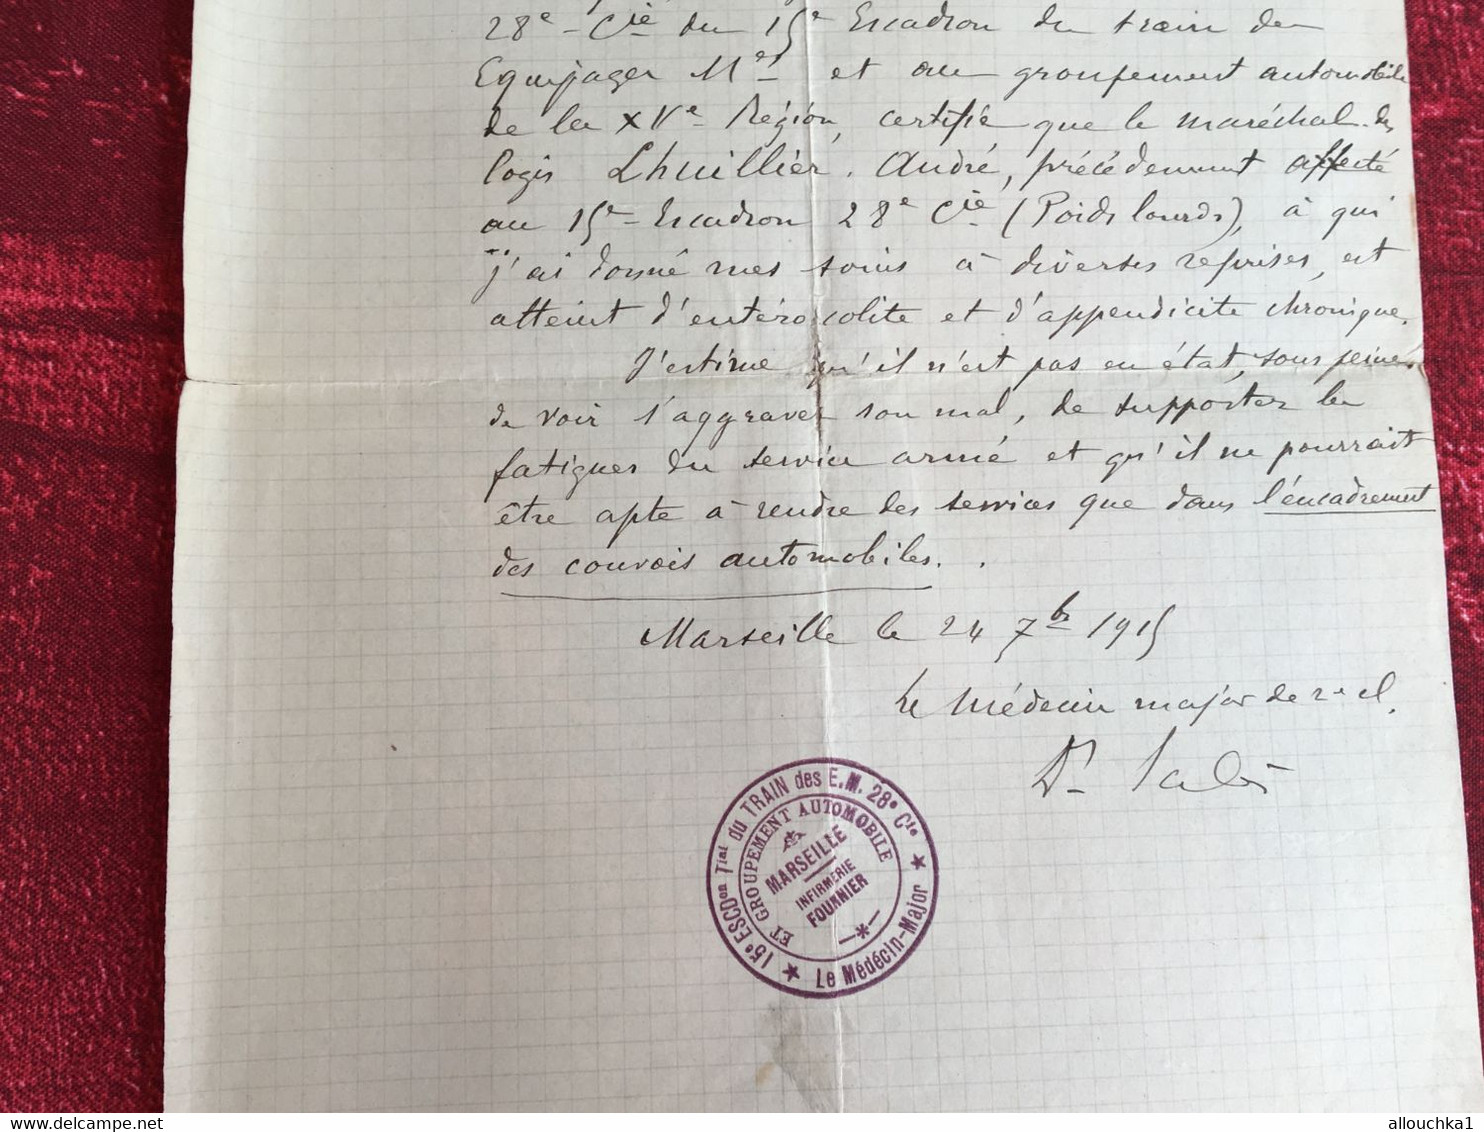 28e Cie du 15e Escadron du train des
Equipages Mres et au groupement automobile
de la XVe Région, certifie que le maréchal des
logis Lhuillier André, précédemment affecté
au 15e Escadron 28e Cie (Poids lourds), à qui
j'ai donné mes soins à diverses reprises, est
atteint d'entérocolite et d'appendicite chronique.
J'estime qu'il n'est pas en état, sous peine
de voir s'aggraver son mal, de supporter les
fatigues du service armé et qu'il ne pourrait
être apte à rendre des services que dans l'encadrement
des convois automobiles. .
Marseille le 24 7bre 1915
Le Médecin major de 2e cl.
Dr
15e ESCDon Tial DU TRAIN des E.M. 28e Cie
ET GROUPEMENT AUTOMOBILE
MARSEILLE
INFIRMERIE
FOURNIER
Le Médécin-Major
allouchka1
www.delcampe.net